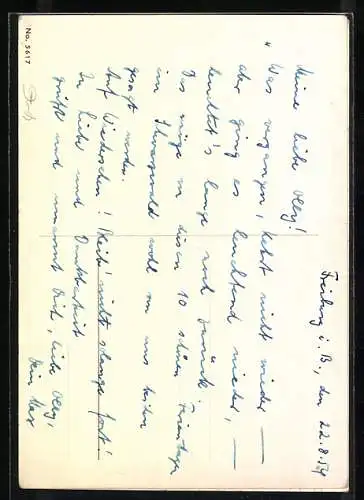 No. 5617
Freiburg i. B., den 22.8.54
Meine liebe Olly!
"Was vergangen, kehrt nicht wieder —
aber ging es leuchtend nieder, —
leuchtet's lange noch zurück."
Das möge von diesen 10 schönen Ferientagen
im Schwarzwald wohl von uns beiden
gesagt werden.
Auf Wiedersehen! Bleibe nicht solange fort! —
In Liebe und Dankbarkeit
grüßt und umarmt Dich, liebe Olly,
Dein Max